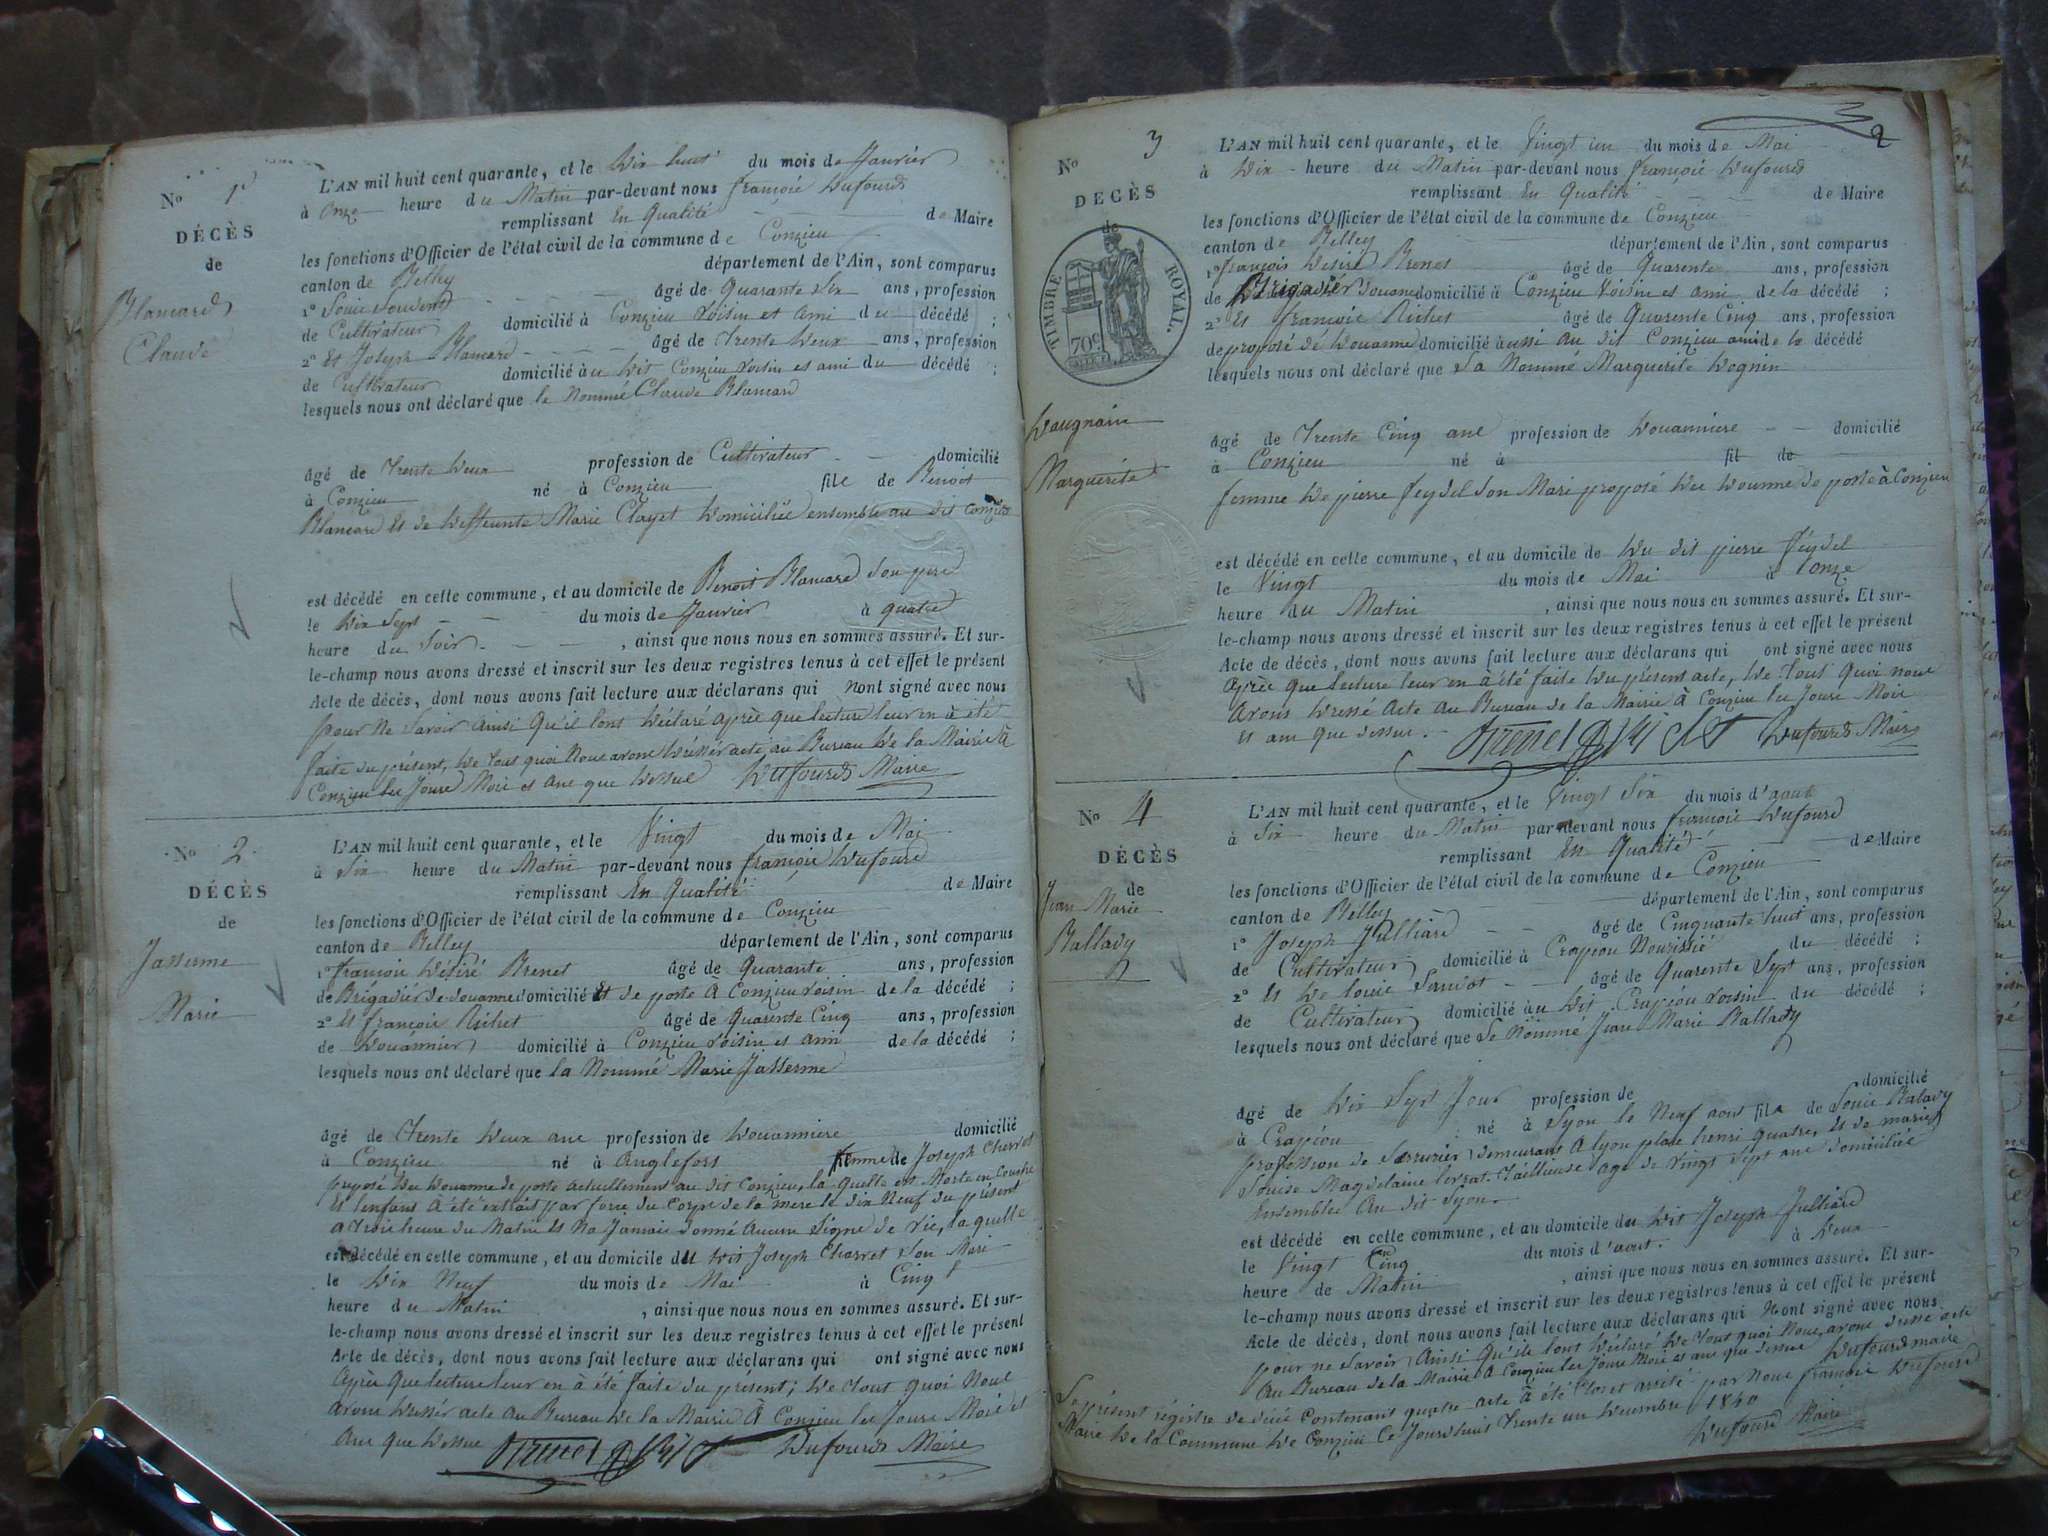 No 1er
DÉCÈS
de
Blancard
Claude
L'AN mil huit cent quarante, et le Dix huit du mois de Janvier
à Onze heure du Matin par-devant nous françois Dufourd
remplissant En Qualité de Maire
les fonctions d'Officier de l'état civil de la commune de Conzieu
canton de Belley département de l'Ain, sont comparus
1° âgé de Quarante Six ans, profession
de Cultivateur domicilié à Conzieu voisin et ami du décédé ;
2° Et Joseph Blancard âgé de Trente Deux ans, profession
de Cultivateur domicilié au Dit Conzieu voisin et ami du décédé ;
lesquels nous ont déclaré que le Nommé Claude Blancard
âgé de Trente Deux profession de Cultivateur domicilié
à Conzieu né à Conzieu fils de Benoit
Blancard Et de Deffeunte Marie Clayet Domiciliée ensemble au dit Conzieu
est décédé en cette commune, et au domicile de Benoit Blancard Son père
le Dix Sept du mois de Janvier à quatre
heure du Soir, ainsi que nous nous en sommes assuré. Et sur-
le-champ nous avons dressé et inscrit sur les deux registres tenus à cet effet le présent
Acte de décès, dont nous avons fait lecture aux déclarans qui Nont signé avec nous
pour Ne Savoir ainsi Qu'il lont Déclaré après que lecture leur en à été
faite du présent, De tous quoi Nous avons Dressér acte au Bureau De la Mairie à
Conzieu les Jours Mois et ans que Dessus Dufourd Maire
No 2
DÉCÈS
de
Jasserme
Marie
L'AN mil huit cent quarante, et le Vingt du mois de Mai
à Six heure du Matin par-devant nous françois Dufourd
remplissant En Qualité de Maire
les fonctions d'Officier de l'état civil de la commune de Conzieu
canton de Belley département de l'Ain, sont comparus
1° françois Désiré Brenet âgé de Quarante ans, profession
de Brigadier de douanne domicilié Et de poste à Conzieu voisin de la décédé ;
2° Et françois Richet âgé de Quarente Cinq ans, profession
de Douannier domicilié à Conzieu voisin et ami de la décédé ;
lesquels nous ont déclaré que la Nommé Marie Jasserme
âgé de Trente Deux ans profession de Douanniere domicilié
à Conzieu né à Anglefort femme de Joseph Charret
proposé Des Douanne de poste actuellement au dit Conzieu, la quelle est Morte en Couche
Et lenfant à été extrait par force du Corps de la mere le dix Neuf du présent
a Trois heure du Matin Et Na Jamais donné Aucun Signe de vie, la quelle
est décédé en cette commune, et au domicile du Dit Joseph Charret Son Mari
le Dix Neuf du mois de Mai à Cinq
heure du Matin, ainsi que nous nous en sommes assuré. Et sur-
le-champ nous avons dressé et inscrit sur les deux registres tenus à cet effet le présent
Acte de décès, dont nous avons fait lecture aux déclarans qui ont signé avec nous
Après Que lecture leur en à été faite du présent ; De tout quoi Nous
avons Dressér acte au Bureau De la Mairie à Conzieu les Jours Mois et
Ans que Dessus Brenet Dufourd Maire
3 2
No 3
DÉCÈS
de
TIMBRE ROYAL.
70c
Daugnain
Marguerite
L'AN mil huit cent quarante, et le Vingt un du mois de Mai
à Dix heure du Matin par-devant nous françois Dufourd
remplissant En Qualité de Maire
les fonctions d'Officier de l'état civil de la commune de Conzieu
canton de Belley département de l'Ain, sont comparus
1° françois Désiré Brenet âgé de Quarente ans, profession
de Brigadier Douane domicilié à Conzieu Voisin et ami de la décédé ;
2° Et françois Richet âgé de Quarente Cinq ans, profession
de proposé de Douanne domicilié aussi au dit Conzieu ami de la décédé
lesquels nous ont déclaré que La Nommé Marguerite Dognin
âgé de Trente Cinq ans profession de Douanniere domicilié
à Conzieu né à fil de
femme De pierre feydel Son Mari proposé Des Douanne de poste à Conzieu
est décédé en cette commune, et au domicile de Du dit pierre feydel
le Vingt du mois de Mai à onze
heure du Matin, ainsi que nous nous en sommes assuré. Et sur-
le-champ nous avons dressé et inscrit sur les deux registres tenus à cet effet le présent
Acte de décès, dont nous avons fait lecture aux déclarans qui ont signé avec nous
Après Que lecture leur en à été faite Du présent acte, De Tous Quoi nous
Avons Dressé Acte au Bureau de la Mairie à Conzieu les Jours Mois
Et ans que dessus. Brenet Dufourd Maire
No 4
DÉCÈS
de
Jean Marie
Ballavy
L'AN mil huit cent quarante, et le Vingt Six du mois d'aout
à Six heure du Matin par-devant nous françois Dufourd
remplissant En Qualité de Maire
les fonctions d'Officier de l'état civil de la commune de Conzieu
canton de Belley département de l'Ain, sont comparus
1° Joseph Julliard âgé de Cinquante huit ans, profession
de Cultivateur domicilié à Crapéou Nourissié du décédé ;
2° Et De louis âgé de Quarente Sept ans, profession
de Cultivateur domicilié au Dit Crapéou voisin du décédé ;
lesquels nous ont déclaré que Le Nommé Jean Marie Ballavy
âgé de Dix Sept Jour profession de domicilié
à Crapéou né à Lyon le Neuf aout fils de Louis Balavy
profession de Serrurier demeurant à Lyon place henri quatre, Et de marie
Louise Magdelaine Tailleuse age de Vingt Sept ans domiciliée
Ensembles Au dit Lyon.
est décédé en cette commune, et au domicile du Dit Joseph Julliard
le Vingt Cinq du mois d'aout. à Deux
heure de Matin, ainsi que nous nous en sommes assuré. Et sur-
le-champ nous avons dressé et inscrit sur les deux registres tenus à cet effet le présent
Acte de décès, dont nous avons fait lecture aux déclarans qui Nont signé avec nous
pour ne Savoir, Ainsi Qu'ils lont Déclaré De Tout quoi Nous avons dressé acte
Au Bureau de la Mairie à Conzieu les Jours Mois et ans que dessus Dufourd maire
Le présent régistre de décé Contenant quatre acte à été Clos et arrêté par Nous françois Dufourd
Maire De la Commune De Conzieu Ce Jourdhuis Trente un Décembre 1840
Dufourd Maire